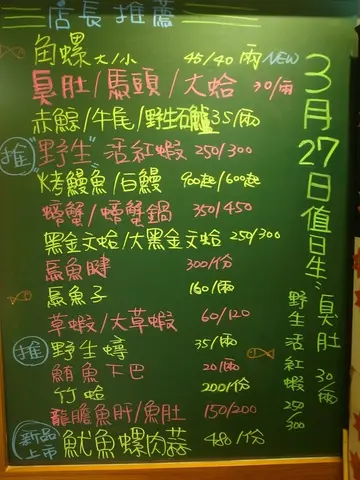 店長推薦
角螺 大/小 45/40 兩 NEW
臭肚/馬頭/大蛤 30/兩
赤鯮/牛尾/野生石鱸 35/兩
推 "野生"活紅蝦 250/300
烤鰻魚/白鰻 900起/600起
螃蟹/螃蟹鍋 350/450
黑金文蛤/大黑金文蛤 250/300
魚腱 300/份
魚子 160/兩
草蝦/大草蝦 60/120
推 野生蟳 35/兩
鮪魚下巴 20/兩
竹蛤 200/份
龍膽魚肝/魚肚 150/200
新品上市 魷魚螺肉蒜 480/份
3月27日值日生:
臭肚 30/兩
野生活紅蝦 250/300